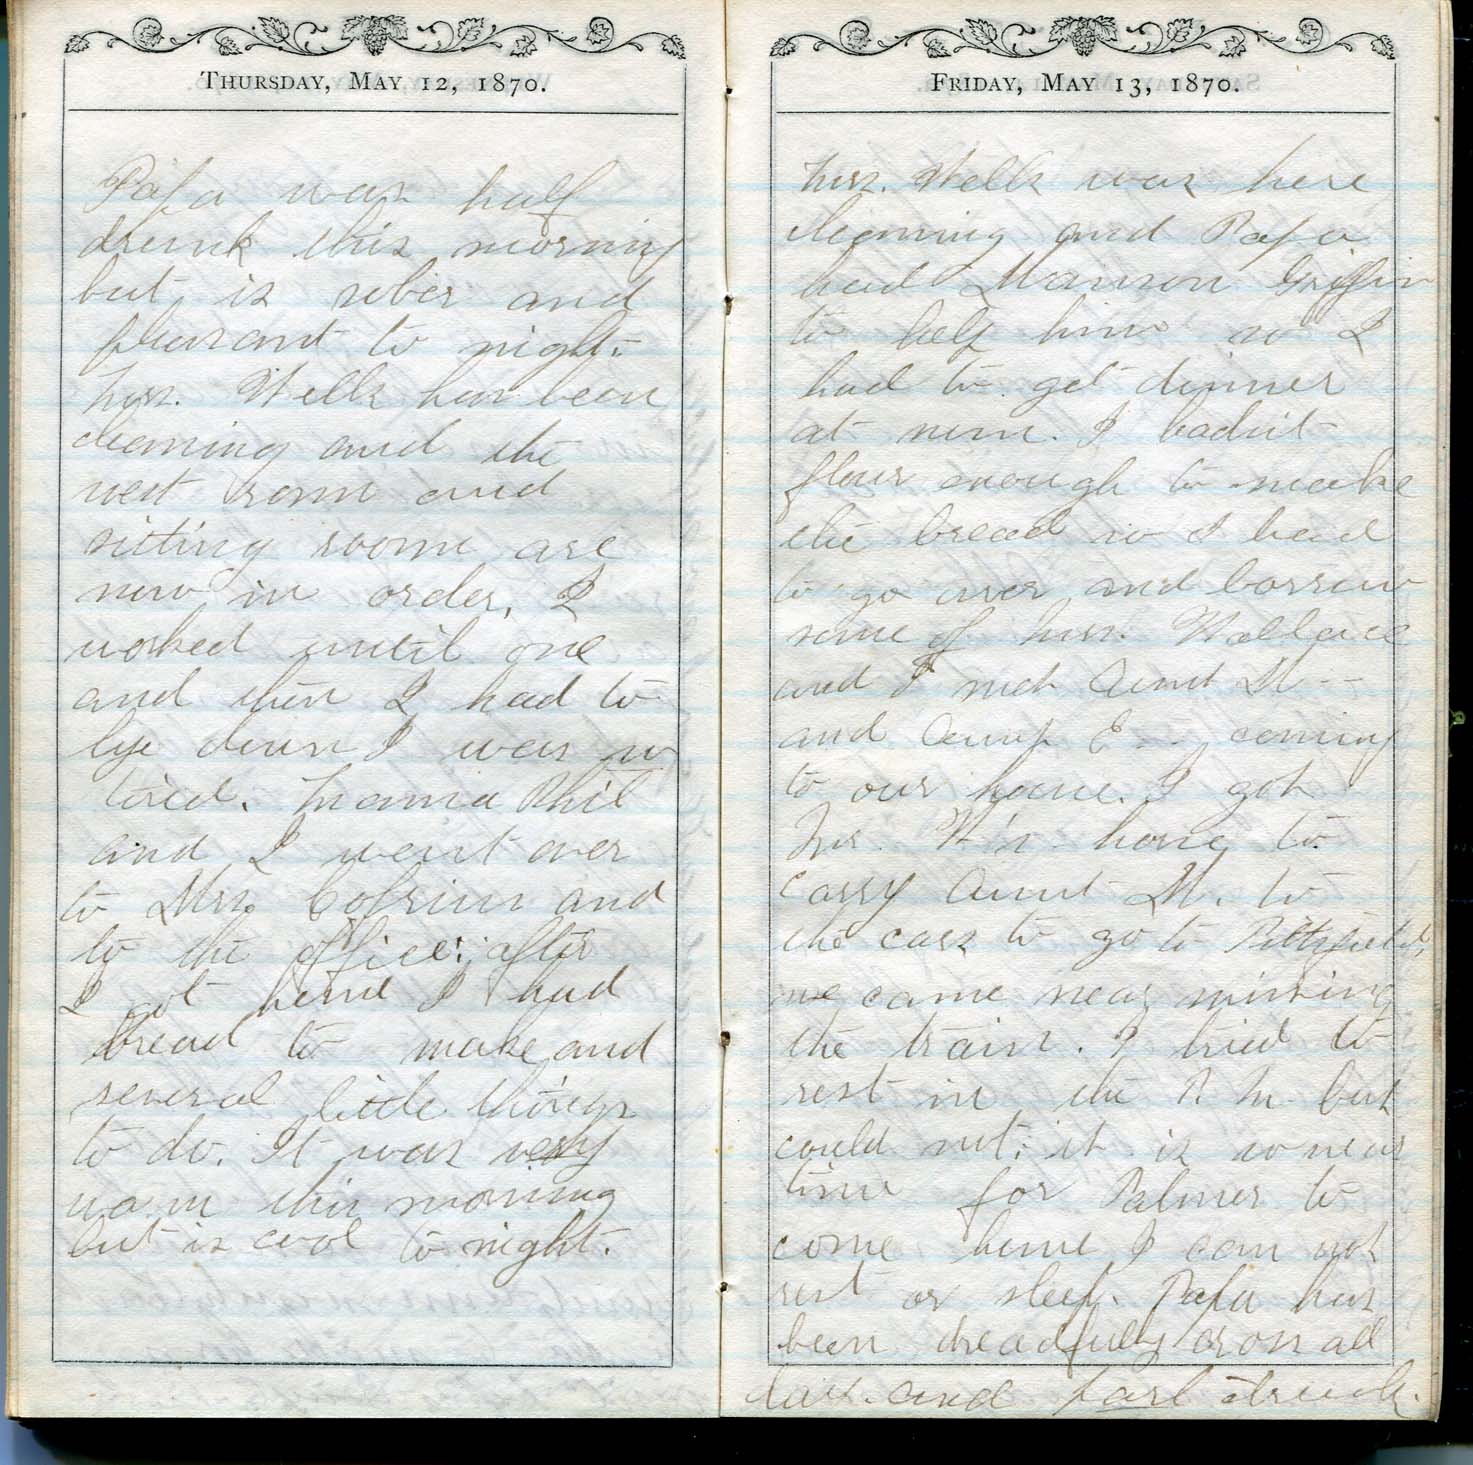 THURSDAY, MAY 12, 1870.
Papa was half
drunk this morning
but is sober and
pleasant to night.
Mrs. Wells has been
cleaning and the
west room and
sitting room are
now in order. I
worked until one
and then I had to
lye down I was so
tired. Mama Phil
and I went over
to Mrs and
to the office: after
I got home I had
bread to make and
several little things
to do. It was very
warm this morning
but is cool to night.
FRIDAY, MAY 13, 1870.
Mrs. Wells was here
cleaning and Papa
had Griffin
to help him so I
had to get dinner
at noon. I hadnt
flour enough to make
the bread so I had
to go over and borrow
some of Mrs. Wallace
and I met Aunt M--
and Aunt E-- coming
to our house. I got
Mr. W's horse to
carry Aunt M. to
the cars to go to Pittsfield,
we came near missing
the train. I tried to
rest in the P. M. but
could not: it is so near
time for Palmer to
come home I can not
rest or sleep. Papa has
been dreadfully cross all
day. and part drunk.